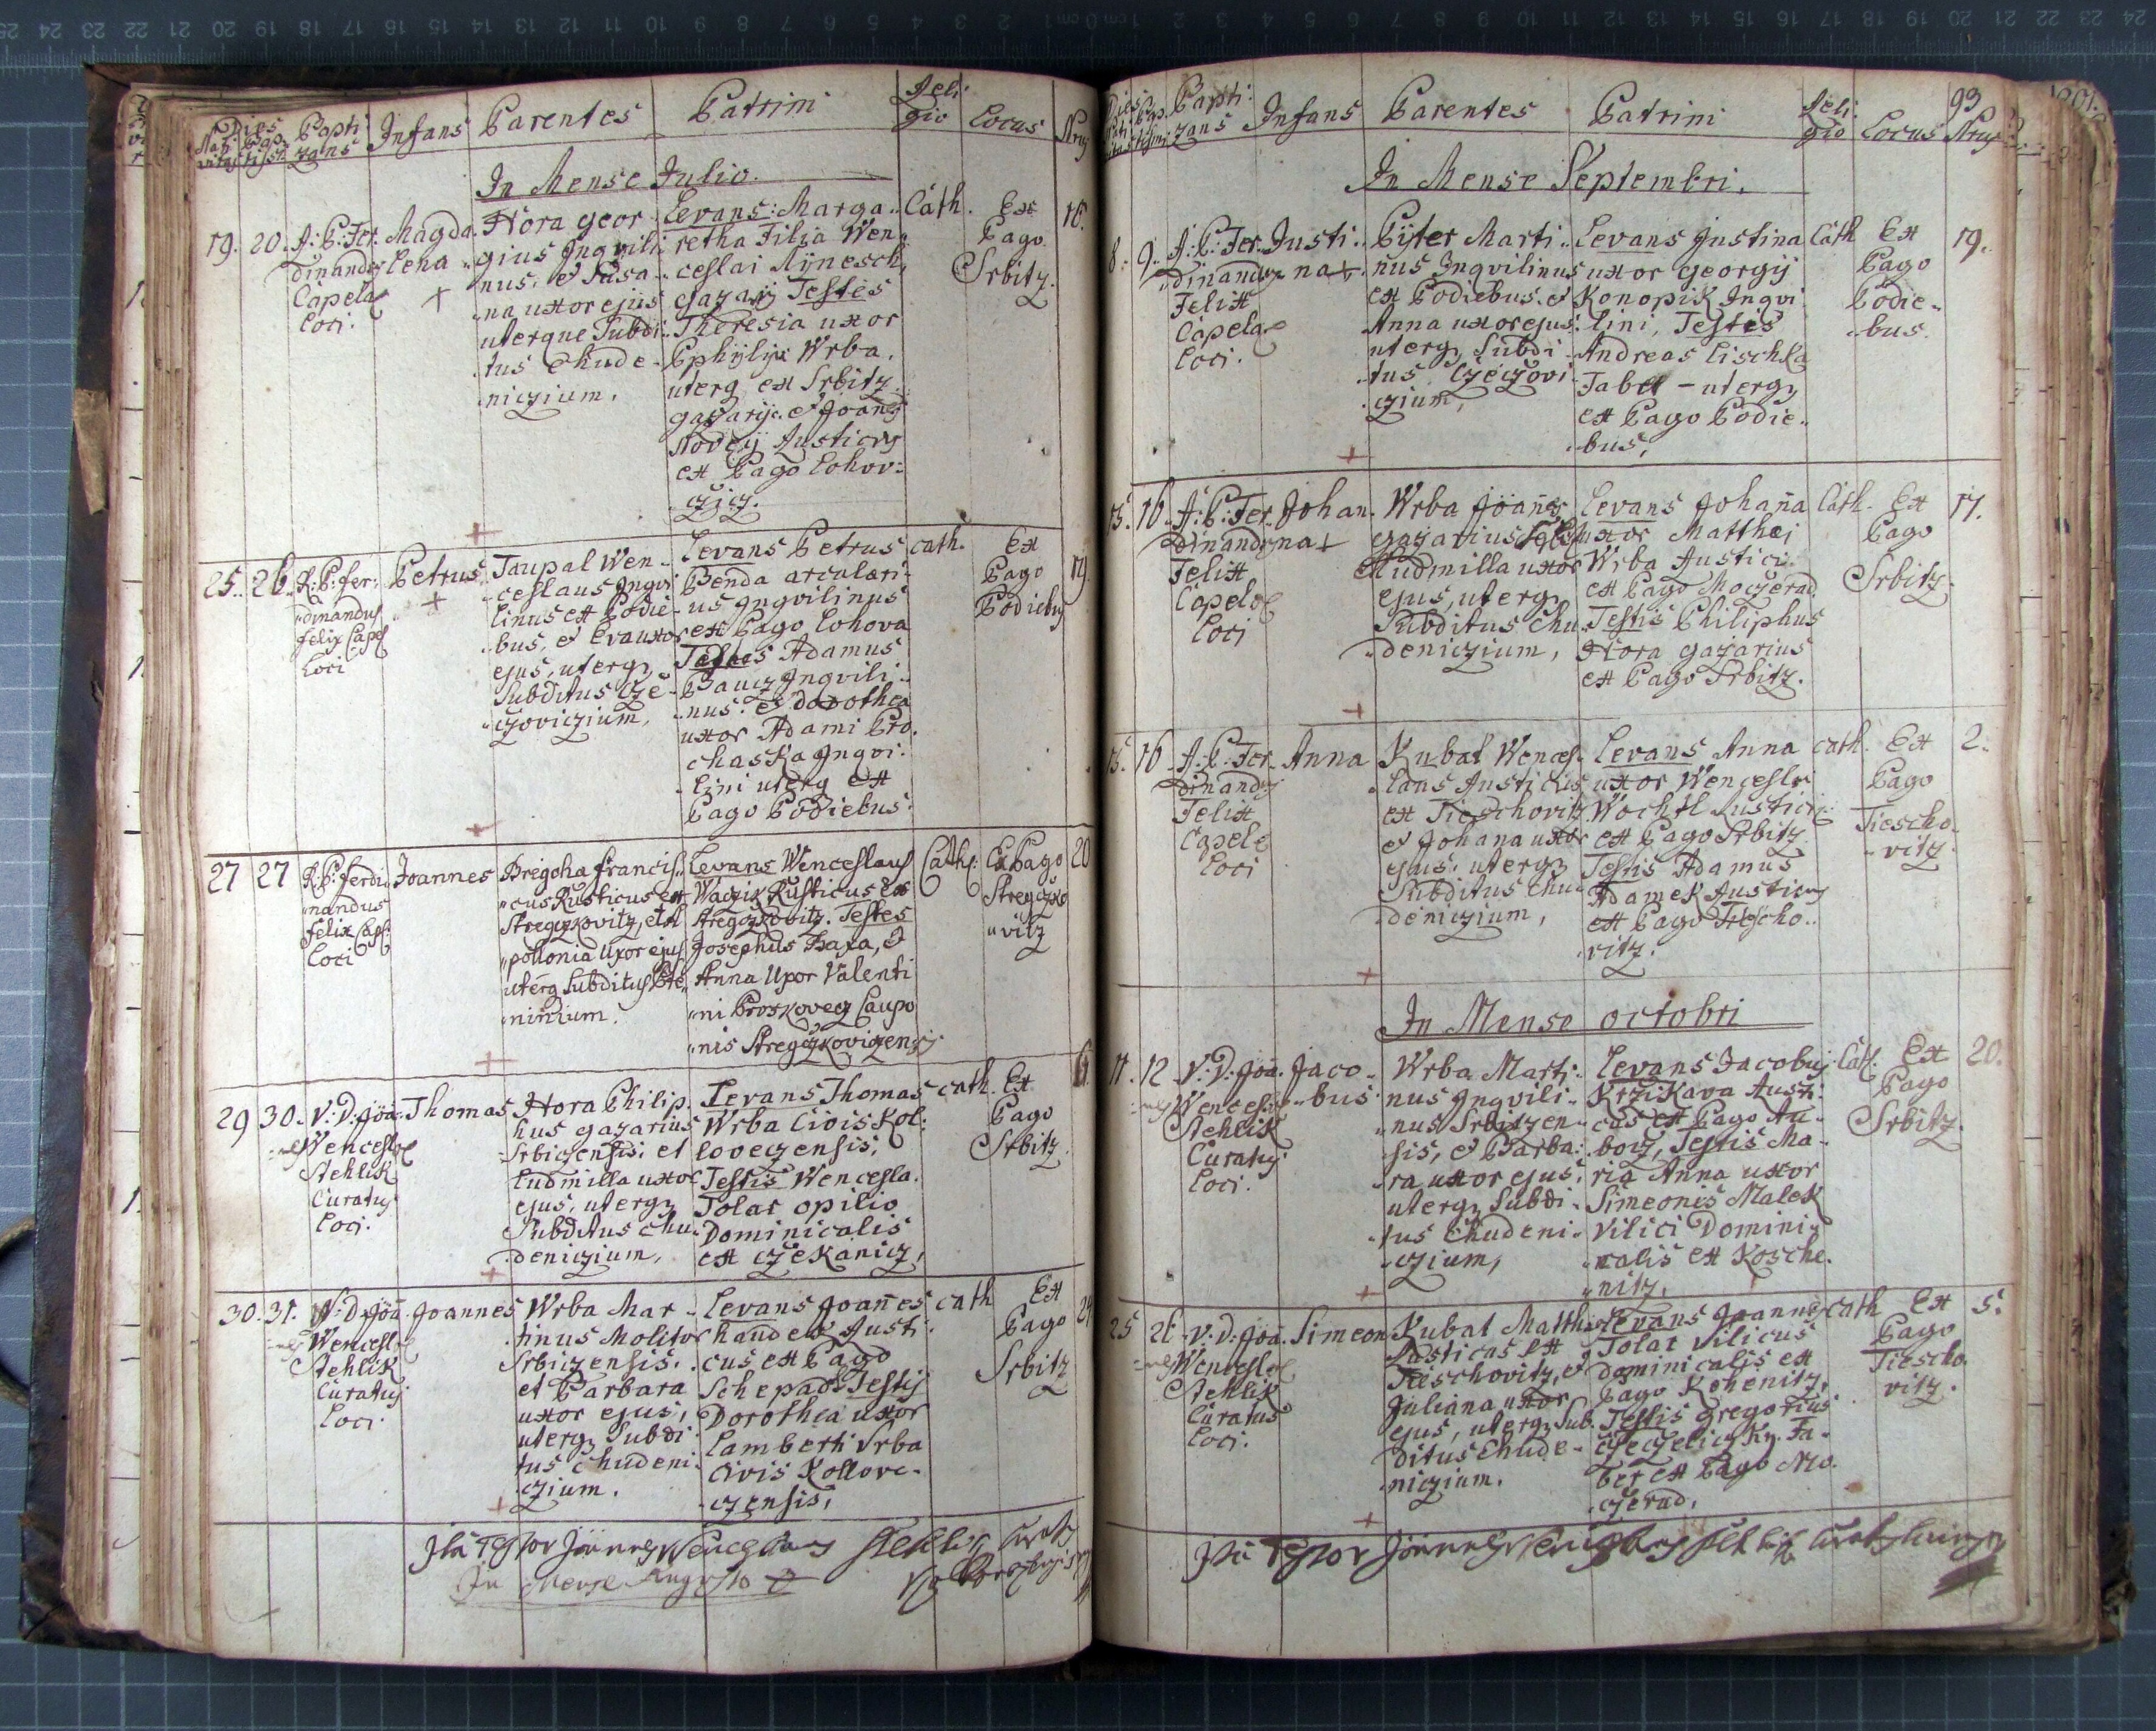 Dies
Nati Bap Bapti
vitatis tism zans Infans Parentes Patrini Reli gio Locus Nrus
In Mense Julio.
19. 20. A: P: Fer
dinandus
Capela
Loci.
Magda
lena
Hora Geor
gius Inqvili
nus, et Susa
na uxor ejus
uterque Subdi
tus Chude
niczium.
Levans: Marga
retha Filia Wen
ceslai
gazarij Testes
Theresia uxor
Wrba,
uterq ex Srbitz
gazarij. et Joanes
Rusticus
ex Pago Lohov
czicz.
Cath.
Ex
Pago
Srbitz.
25. 26. A: P: fer:
dinandus
felix Capel
Loci
Petrus
Taupal Wen
ceslaus Inqvi
linus ex Podie
bus, et Eva uxor
ejus, uterq
Subditus Cze
czoviczium,
Levans Petrus
Benda arculari
us Inqvilinus
ex Pago Lohova
Testes Adamus
Inqvili
nus. et dorothea
uxor Adami Pro
chaska Inqvi
lini uterq ex
Pago Podiebus.
cath.
Ex
Pago
Podiebus
19
27 27 R: P: ferdi
nandus
felix Cap:
Loci
Joannes
Francis
cus Rusticus ex
Stregczkovitz, et A
pollonia Uxor ejus
uterq Subditus
ninium.
Levans Wenceslaus
Rusticus ex
Stregczkovitz. Testes
Josephus et
Anna Uxor Valenti
ni Proskovecz Caupo
nis Stregczkoviczensis
Cath:
Ex Pago
Stregczko
vitz
20
29 30. V: D: Joa
nes Wencesl
Stehlik
Curatus
Loci.
Thomas
Hora Philip
hus gazarius
Srbiczensis, et
Ludmilla uxor
ejus, uterq
Subditus Chu
deniczium,
Levans Thomas
Wrba Civis Kol
loveczensis,
Testis Wencesla
Tolar opilio
Dominicalis
ex Czekanicz,
cath.
Ex
Pago
Srbitz.
30. 31. V: D: Joa
nes Wencesl
Stehlik
Curatus
Loci.
Joannes
Wrba Mar
tinus Molitor
Srbiczensis.
et Barbara
uxor ejus,
uterq Subdi
tus Chudeni
czium.
Levans Joannes
Rusti
cus ex Pago
Testis
Dorothea uxor
Lamberti Vrba
Civis Kollove
czensis,
cath
Ex
Pago
Srbitz
Ita Testor Joannes Wenceslaus Stehlik
In Mense Augusto
93
Bapti
zans Infans Parentes Patrini Reli gio Locus Nrus
In Mense Septembri.
8. 9. A: P: Fer
dinandus
Felix
Capela
Loci.
Justi
na
Marti
nus Inqvilinus
ex Podiebus. et
Anna uxor ejus
uterq Subdi
tus Czeczovi
czium,
Levans Justina
uxor Georgij
Konopik Inqvi
lini, Testes
Andreas Lischka
Faber - uterq
ex Pago Podie
bus,
Cath
Ex
Pago
Podie
bus.
19.
15. 16. A: P: Fer
dinandus
Felix
Capela
Loci
Johan
na
Wrba Joanes
gazarius
Ludmilla uxor
ejus, uterq
Subditus Chu
deniczium,
Levans Johana
uxor Matthæi
Wrba Rustici
ex Pago Moczerad
Testis Philiphus
Hora gazarius
ex Pago Srbitz.
Cath.
Ex
Pago
Srbitz.
17.
15. 16. A: P: Fer
dinandus
Felix
Capela
Loci
Anna
Kubat Wences
laus Rusticus
ex Tieschovitz
et Johana uxor
ejus. uterq
Subditus Chu
deniczium,
Levans Anna
uxor Wencesla
Rustici
ex Pago Srbitz
Testis Adamus
Adamek Rusticus
ex Pago Tiescho
vitz.
cath.
Ex
Pago
Tiescho
vitz.
2.
In Mense Octobri
11. 12 V: D: Joa
nes Wencesl
Stehlik
Curatus
Loci.
Jaco
bus
Wrba Marti
nus Inqvili
nus Srbitzen
sis, et Barba
ra uxor ejus,
uterq Subdi
tus Chudeni
czium,
Levans Jacobus
Krzikava Rusti
cus ex Pago Au
bocz, Testis Ma
ria Anna uxor
Simeonis Malek
Vilici Domini
calis ex Kosche
nitz,
Cath.
Ex
Pago
Srbitz.
20.
25 26. V: D: Joa
nes Wencesl
Stehlik
Curatus
Loci.
Simeon
Kubat Matthæus
Rusticus ex
Tieschovitz, et
Juliana uxor
ejus, uterq Sub
ditus Chude
niczium.
Levans Joannes
Tolar Vilicus
dominicalis ex
Pago Kohenitz,
Testis Gregorius
Fa
ber ex Pago Mo
czerad,
cath
Ex
Pago
Tiescho
vitz.
5.
Ita Testor Joannes Wenceslaus Stehlik